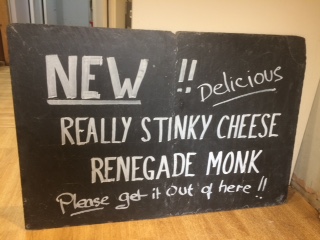 NEW !! Delicious
REALLY STINKY CHEESE
RENEGADE MONK
Please get it out of here !!